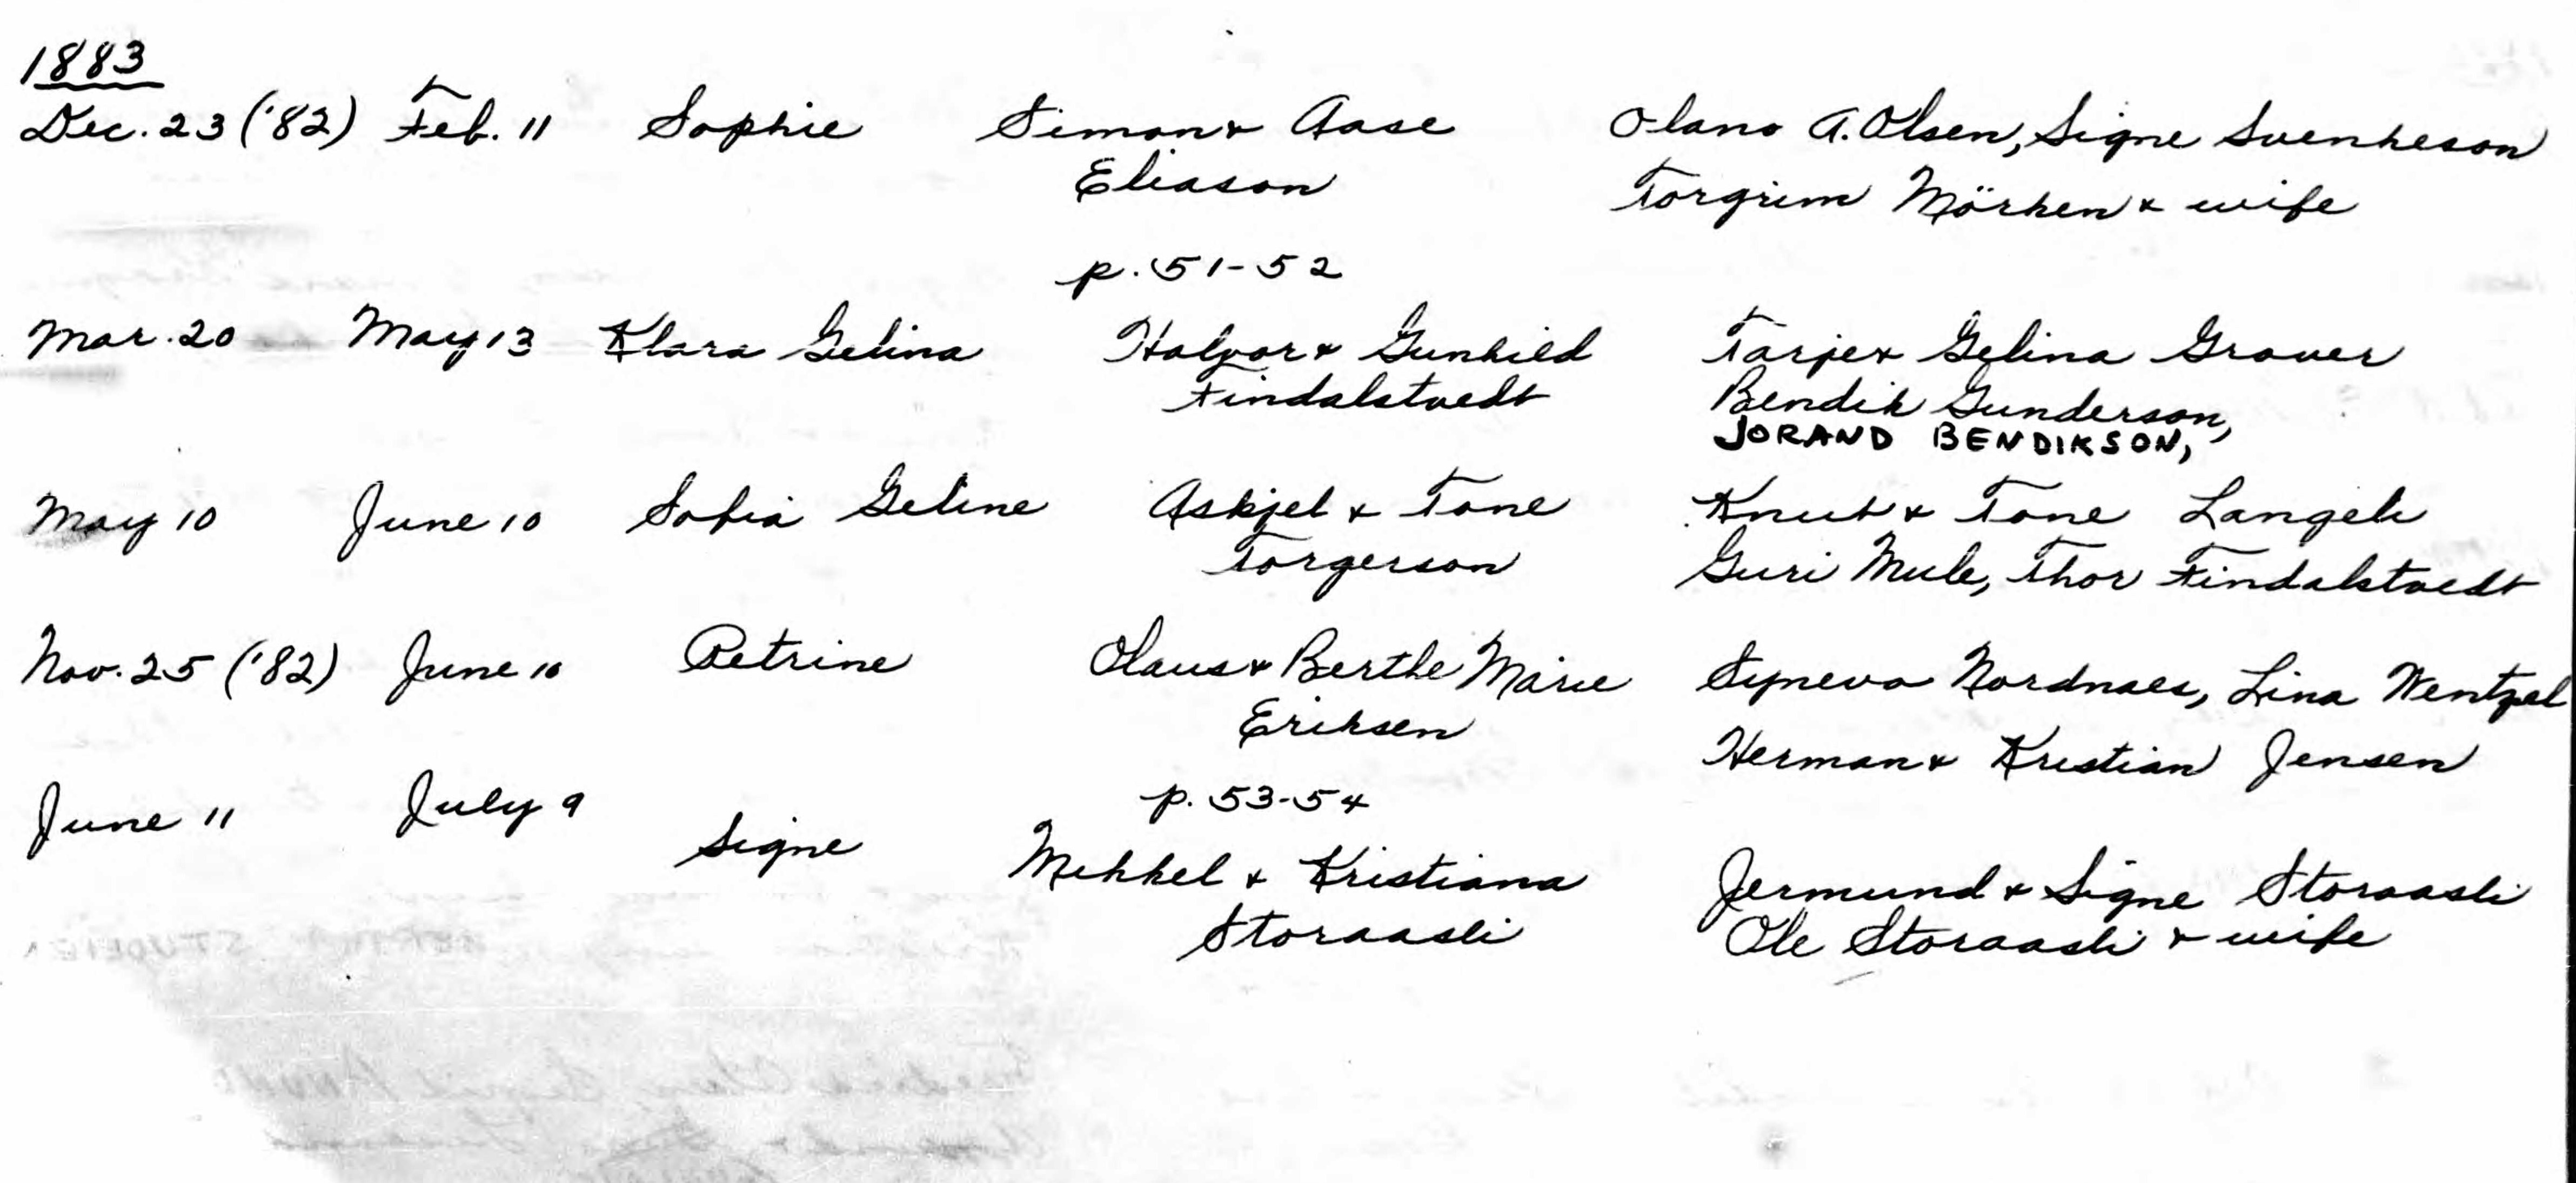 1883
Dec. 23 ('82) Feb. 11 Sophie Simon & Aase Olano A. Olsen, Signe Svenkeson
Eliason Torgrim Mörken & wife
p. 51-52
Mar. 20 May 13 Klara Gelina Halvor & Gunhild Tarje & Gelina Graver
Findalstvedt Bendik Gunderson,
JORAND BENDIKSON,
May 10 June 10 Sofia Geline Askjel & Tone Knut & Tone Langeli
Torgerson Guri Mule, Thor Findalstvedt
Nov. 25 ('82) June 10 Petrine Olaus & Berthe Marie Synevo Nordnaes, Lina Wentzel
Eriksen Herman & Kristian Jensen
June 11 July 9 p. 53-54
Signe Mikkel & Kristiana Jermund & Signe Storaasli
Storaasli Ole Storaasli & wife